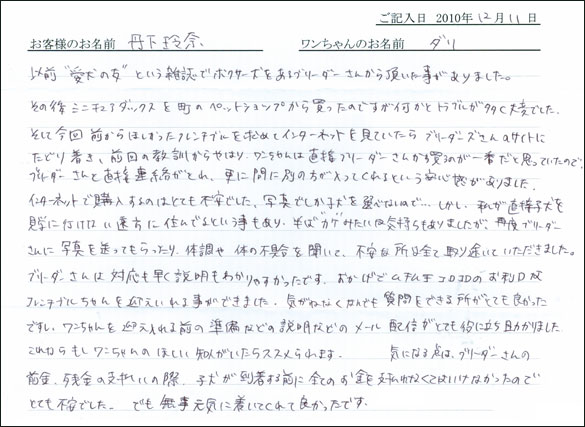 ご記入日 2010年12月11日
お客様のお名前 丹下玲奈 ワンちゃんのお名前 ダリ
以前"愛犬の友"という雑誌でボクサー犬をあるブリーダーさんから頂いた事がありました。
その後ミニチュアダックスを町のペットショップから買ったのですが何かとトラブルが多く大変でした。
そして今回前からほしかったフレンチブルを求めてインターネットを見ていたらブリーダーズさんのサイトに
たどり着き、前回の教訓からやはり、ワンちゃんは直接ブリーダーさんから買うのが一番だと思っていたので、
ブリーダーさんと直接連絡がとれ、更に間に別の方が入ってくれるという安心感がありました。
インターネットで購入するのはとても不安でした、写真でしか子犬を選べないので…しかし、私が直接子犬を
見に行けない遠方に住んでるという事もあり、半ば"カケ"みたいな気持ちもありましたが、再度ブリーダー
さんに写真を送ってもらったり、体調や体の不具合を聞いて、不安な所は全て取り除いていただきました。
ブリーダーさんは対応も早く説明もわかりやすかったです。おかげでムチムチコロコロのお利口な
フレンチブルちゃんを迎えいれる事ができました。気がねなくなんでも質問をできる所がとても良かった
ですし、ワンちゃんを迎え入れる前の準備などの説明などのメール配信がとても役に立ち助かりました
これからもしワンちゃんのほしい知人がいたらススメられます。 気になる点は、ブリーダーさんの
前金、残金の支払いの際、子犬が到着する前に全てのお金を支払わなくてはいけなかったので
とても不安でした。でも無事元気に着いてくれて良かったです。